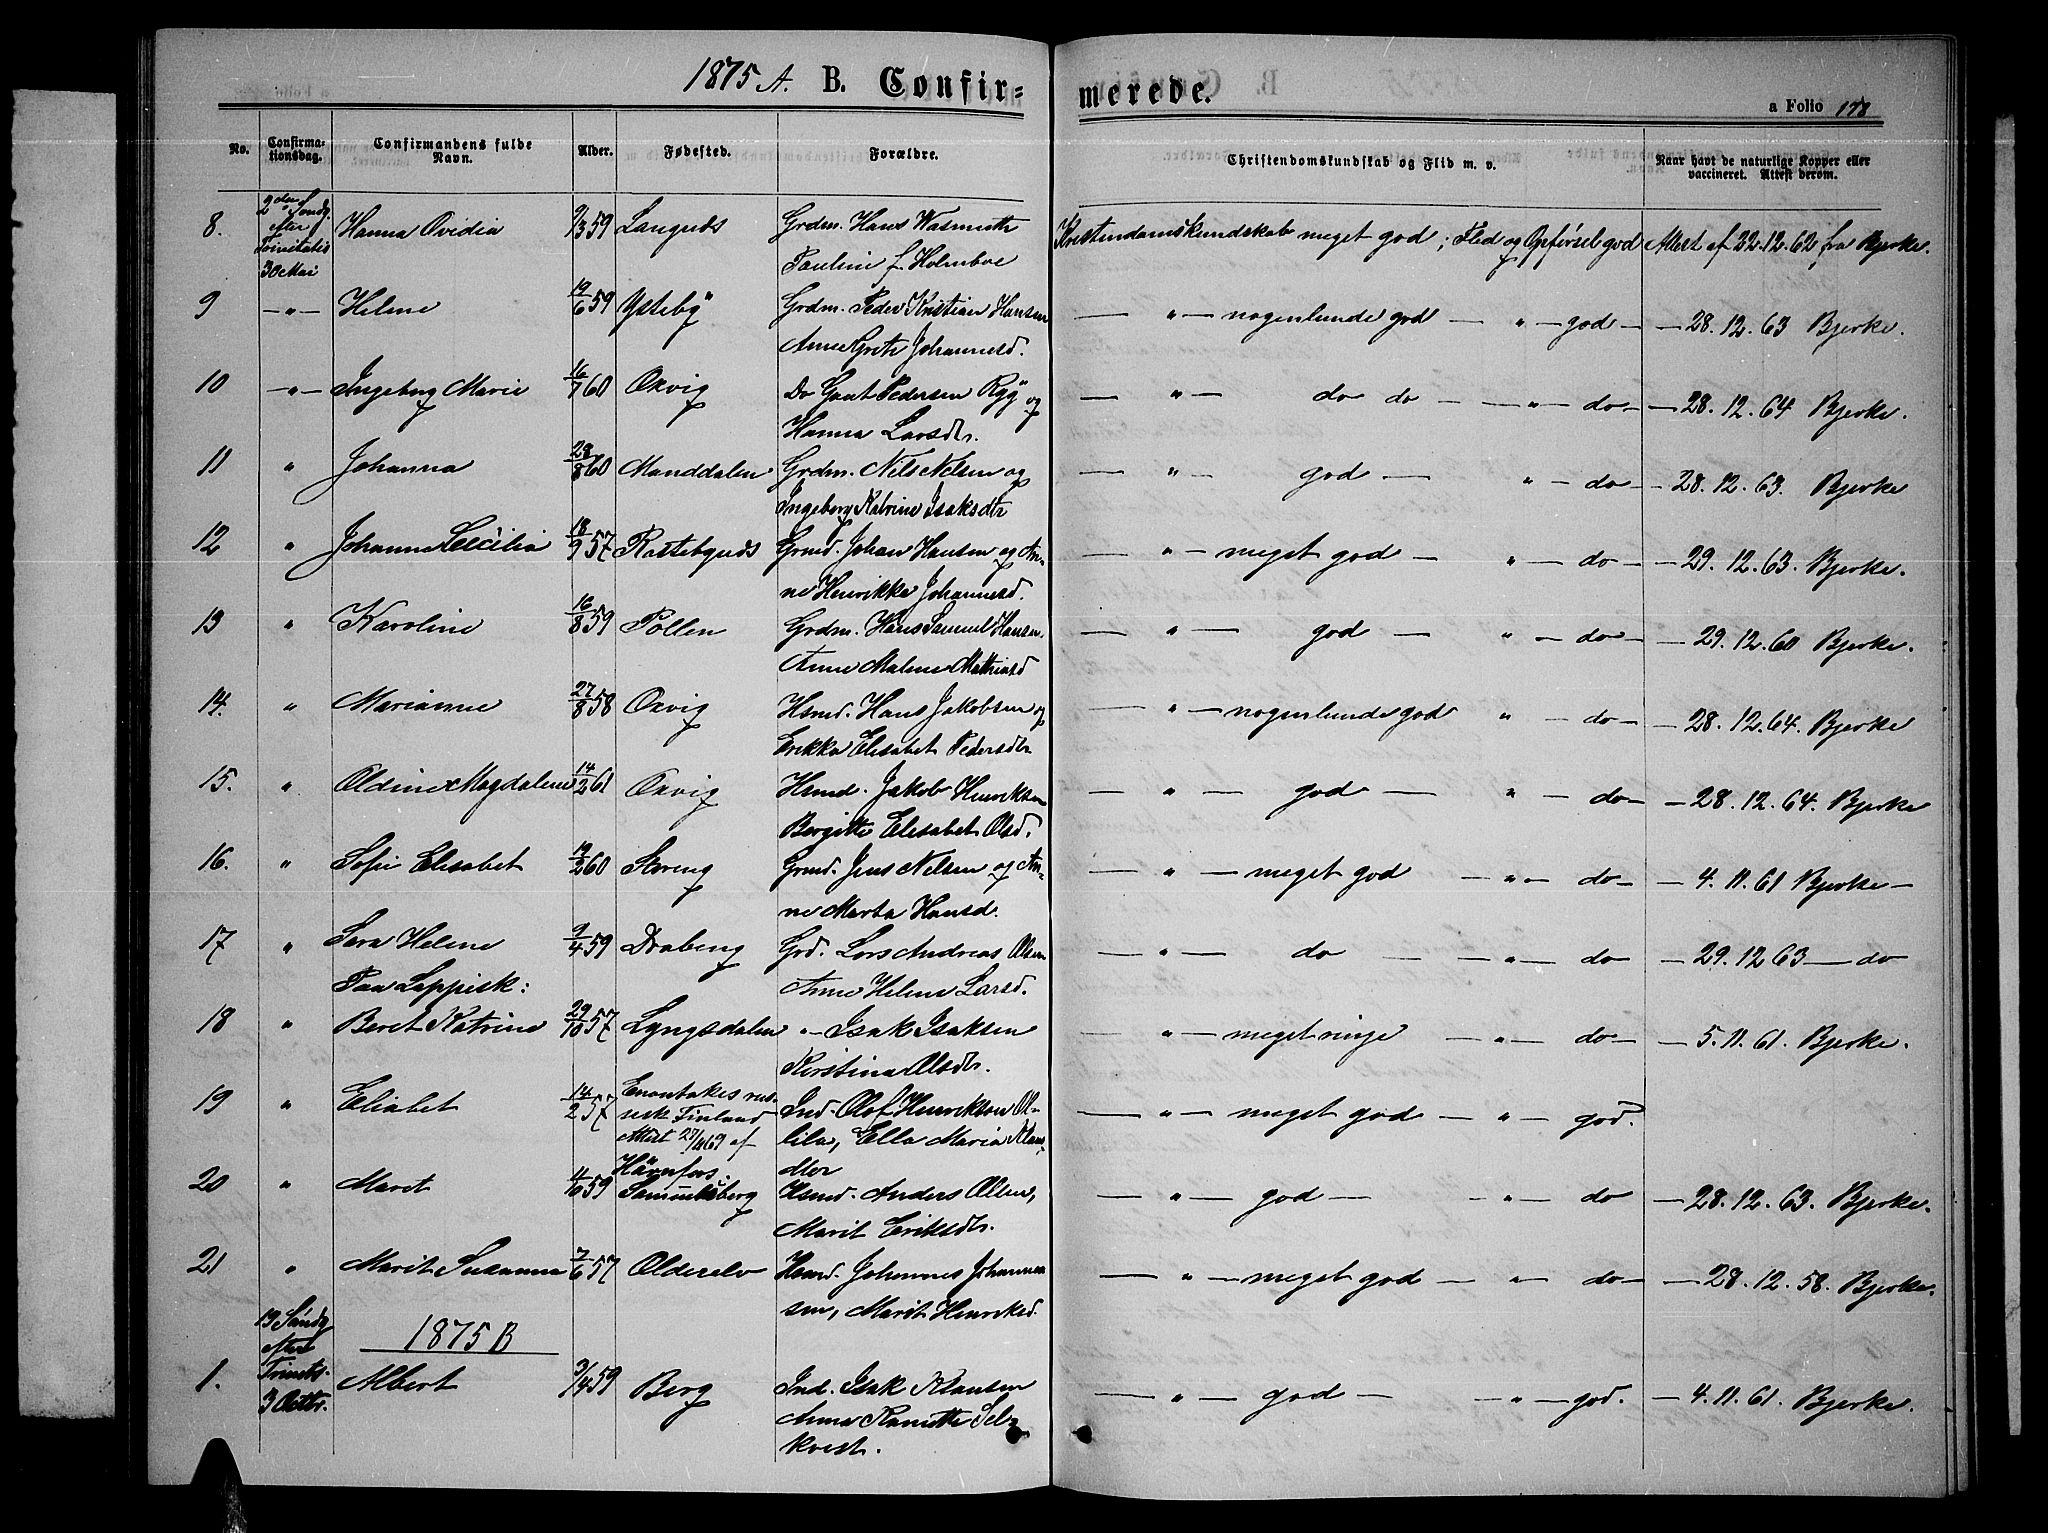 1875 A. B. Confir-
merede.
a Folio 178
No. Confirma-tionsdag. Confirmandens fulde Navn. Alder. Fødested. Forældre. Christendomskundskab og Flid m. v. Naar havt de naturlige Kopper eller vaccineret. Attest derom.
2den Søndg efter Trinitatis 30 Mai
8. Hanna Ovidia 9/3 59 Grdm. Hans Wasmuth Kristendomskundskab meget god; Flid og Opførsel god Attest af 22.12.62 fra Bjerke.
Pauline f. Holmboe
9 -"- Helene 19/6 59 Ysteby Grdm. Peder Kristian Hansen — " — nogenlunde god — " — god — — 28.12.63 Bjerke.
Anne Grete Johannesd.
10 -"- Ingeborg Marie 16/7 60 Oxvig Do Gant Pedersen Ryg og — " — do do — — " — do — — 28.12.64 Bjerke.
Hanna Larsdtr.
11 " Johanna 28/8 60 Manddalen Grdm. Nils Nelsen og — " — god — " — do — — 28.12.63. Bjerke
Ingeborg Katrine Isaksdtr
12 " Johanne Cecilia 18/9 57 Grmd. Johan Hansen og An- — " — meget god — " — do — — 29.12.63. Bjerke.
ne Henrikke Johannesd.
13 " Karoline 16/8 59 Pollen Grdm. Hans Samuel Hansen. — " — god — " — do — — 29.12.60 Bjerke.
Anne Malene Mathiasd
14. " Marianne 27/8 58 Oxvig Hsmd. Hans Jakobsen og — " — nogenlunde god " — do — — 28.12.64. Bjerke
Erikka Elisabet Pedersdtr
15. " Oldine Magdalene 14/2 61 Oxvig Hsmd. Jakob Henriksen — " — god — " — do — — 28.12.64. Bjerke
Bergitte Elisabet Olsd.
16. " Sofie Elisabet 19/2 60 Storeng Grmd. Jens Nelsen og An- — " — meget god — " — do — — 4.11.61 Bjerke —
ne Marta Hansd.
17 " Sara Helene 9/4 59 Draberg Grd. Lars Andreas Olsen — " — do — — " — do — 29.12 63 — do
Paa Lappisk: Anne Helene Larsd.
18 " Beret Katrine 29/10 57 Lyngsdalen " Isak Isaksen — " — meget ringe — " — do — — 5.11.61. Bjerke.
Kirstina Olsdtr.
19 " Eliabet 14/2 57 Enontekes rus- Ind. Olof Henrikson Ol- — " — meget god — " — god.
sisk Finland lila, Ella Maria Klaus-
Attest 27/4 69 af dtr
20 " Maret 4/10 59 Samuelsberg Hsmd. Anders Olsen, — " — god — — " — do — 28.12.63. Bjerke.
Marit Eriksdtr.
21 " Marit Susanna 7/6 57 Olderelv Hsmd. Johannes Johannes — " — meget god — " — do — — 28.12.58. Bjerke.
sen, Marit Henriksd.
1875 B
13 Søndg efter Trinits. 3 Octbr.
1. Albert 3/4 59 Berg Ind. Isak Klausen — " — god — — " — god. — 4.11.61. Bjerke.
Anna Sel-
kvist.